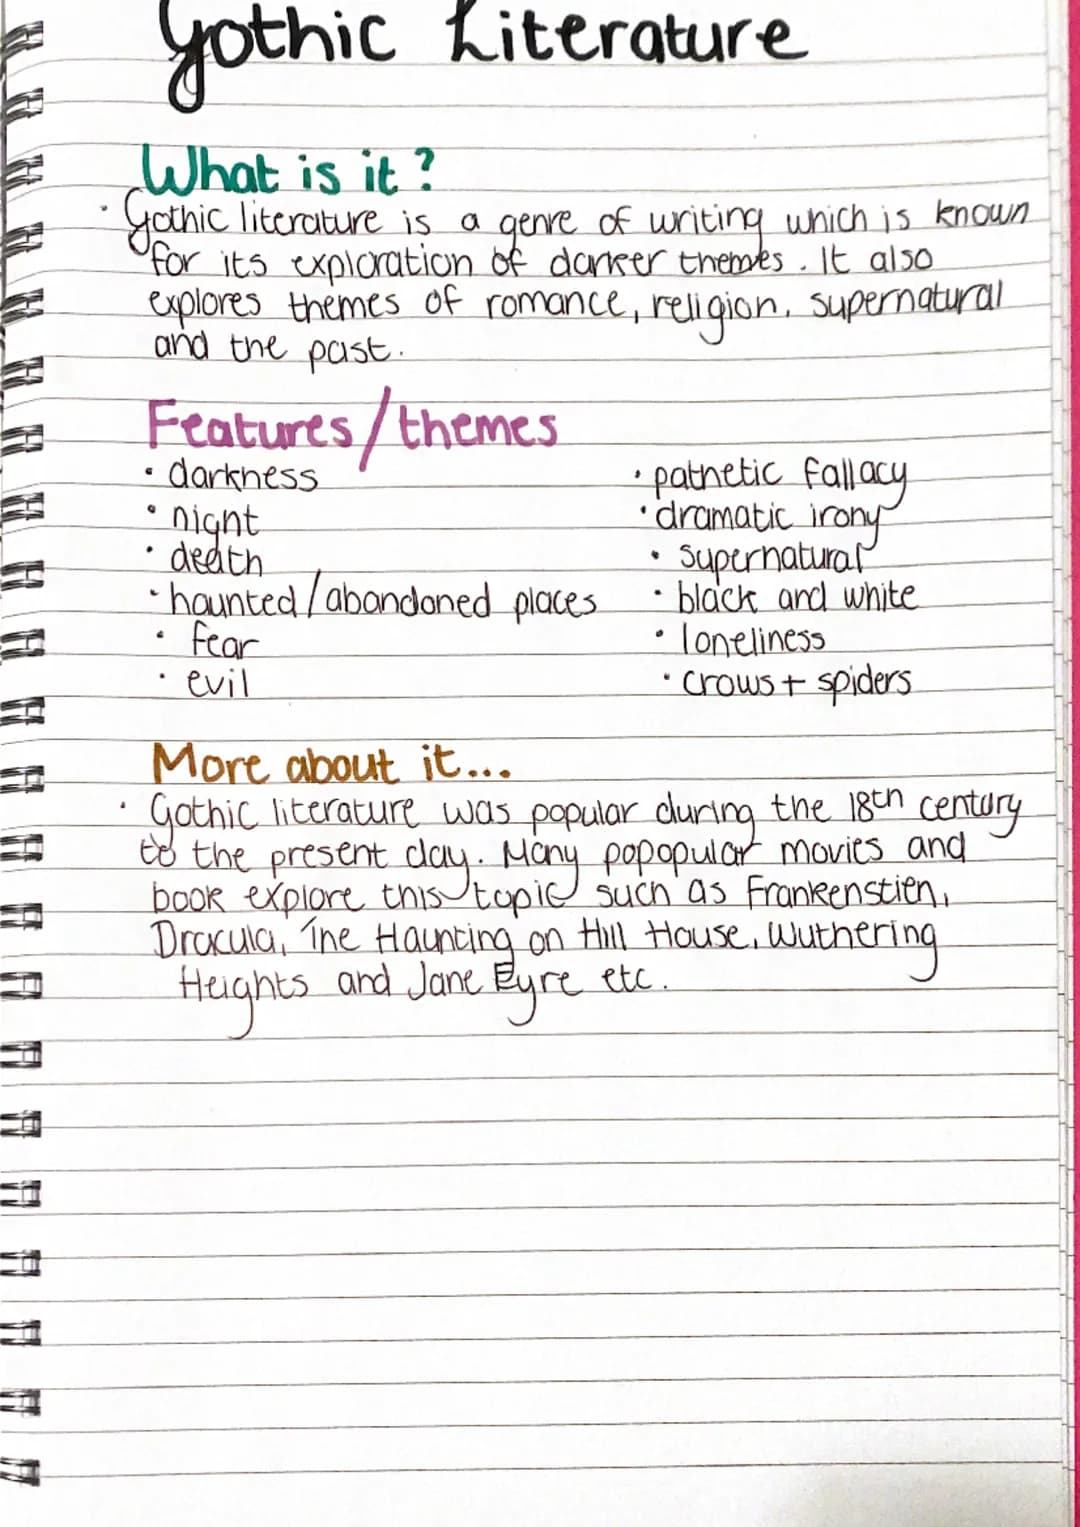 Gothic Literature
What is it?
· Gothic literature is a genre of writing which is known
for its exploration of darker themes. It also
explores themes of romance, religion, supernatural
and the past.
Features/themes
· darkness
· night
· death
· haunted/abandoned places
· fear
· evil
· pathetic fallacy
· dramatic irony
· supernatural
· black and white
· loneliness
· crows + spiders
More about it...
· Gothic literature was popular during the 18th century
to the present day. Many popopular movies and
book explore this topic such as Frankenstien,
Dracula, The Haunting on Hill House, Wuthering
Heights and Jane Eyre etc.